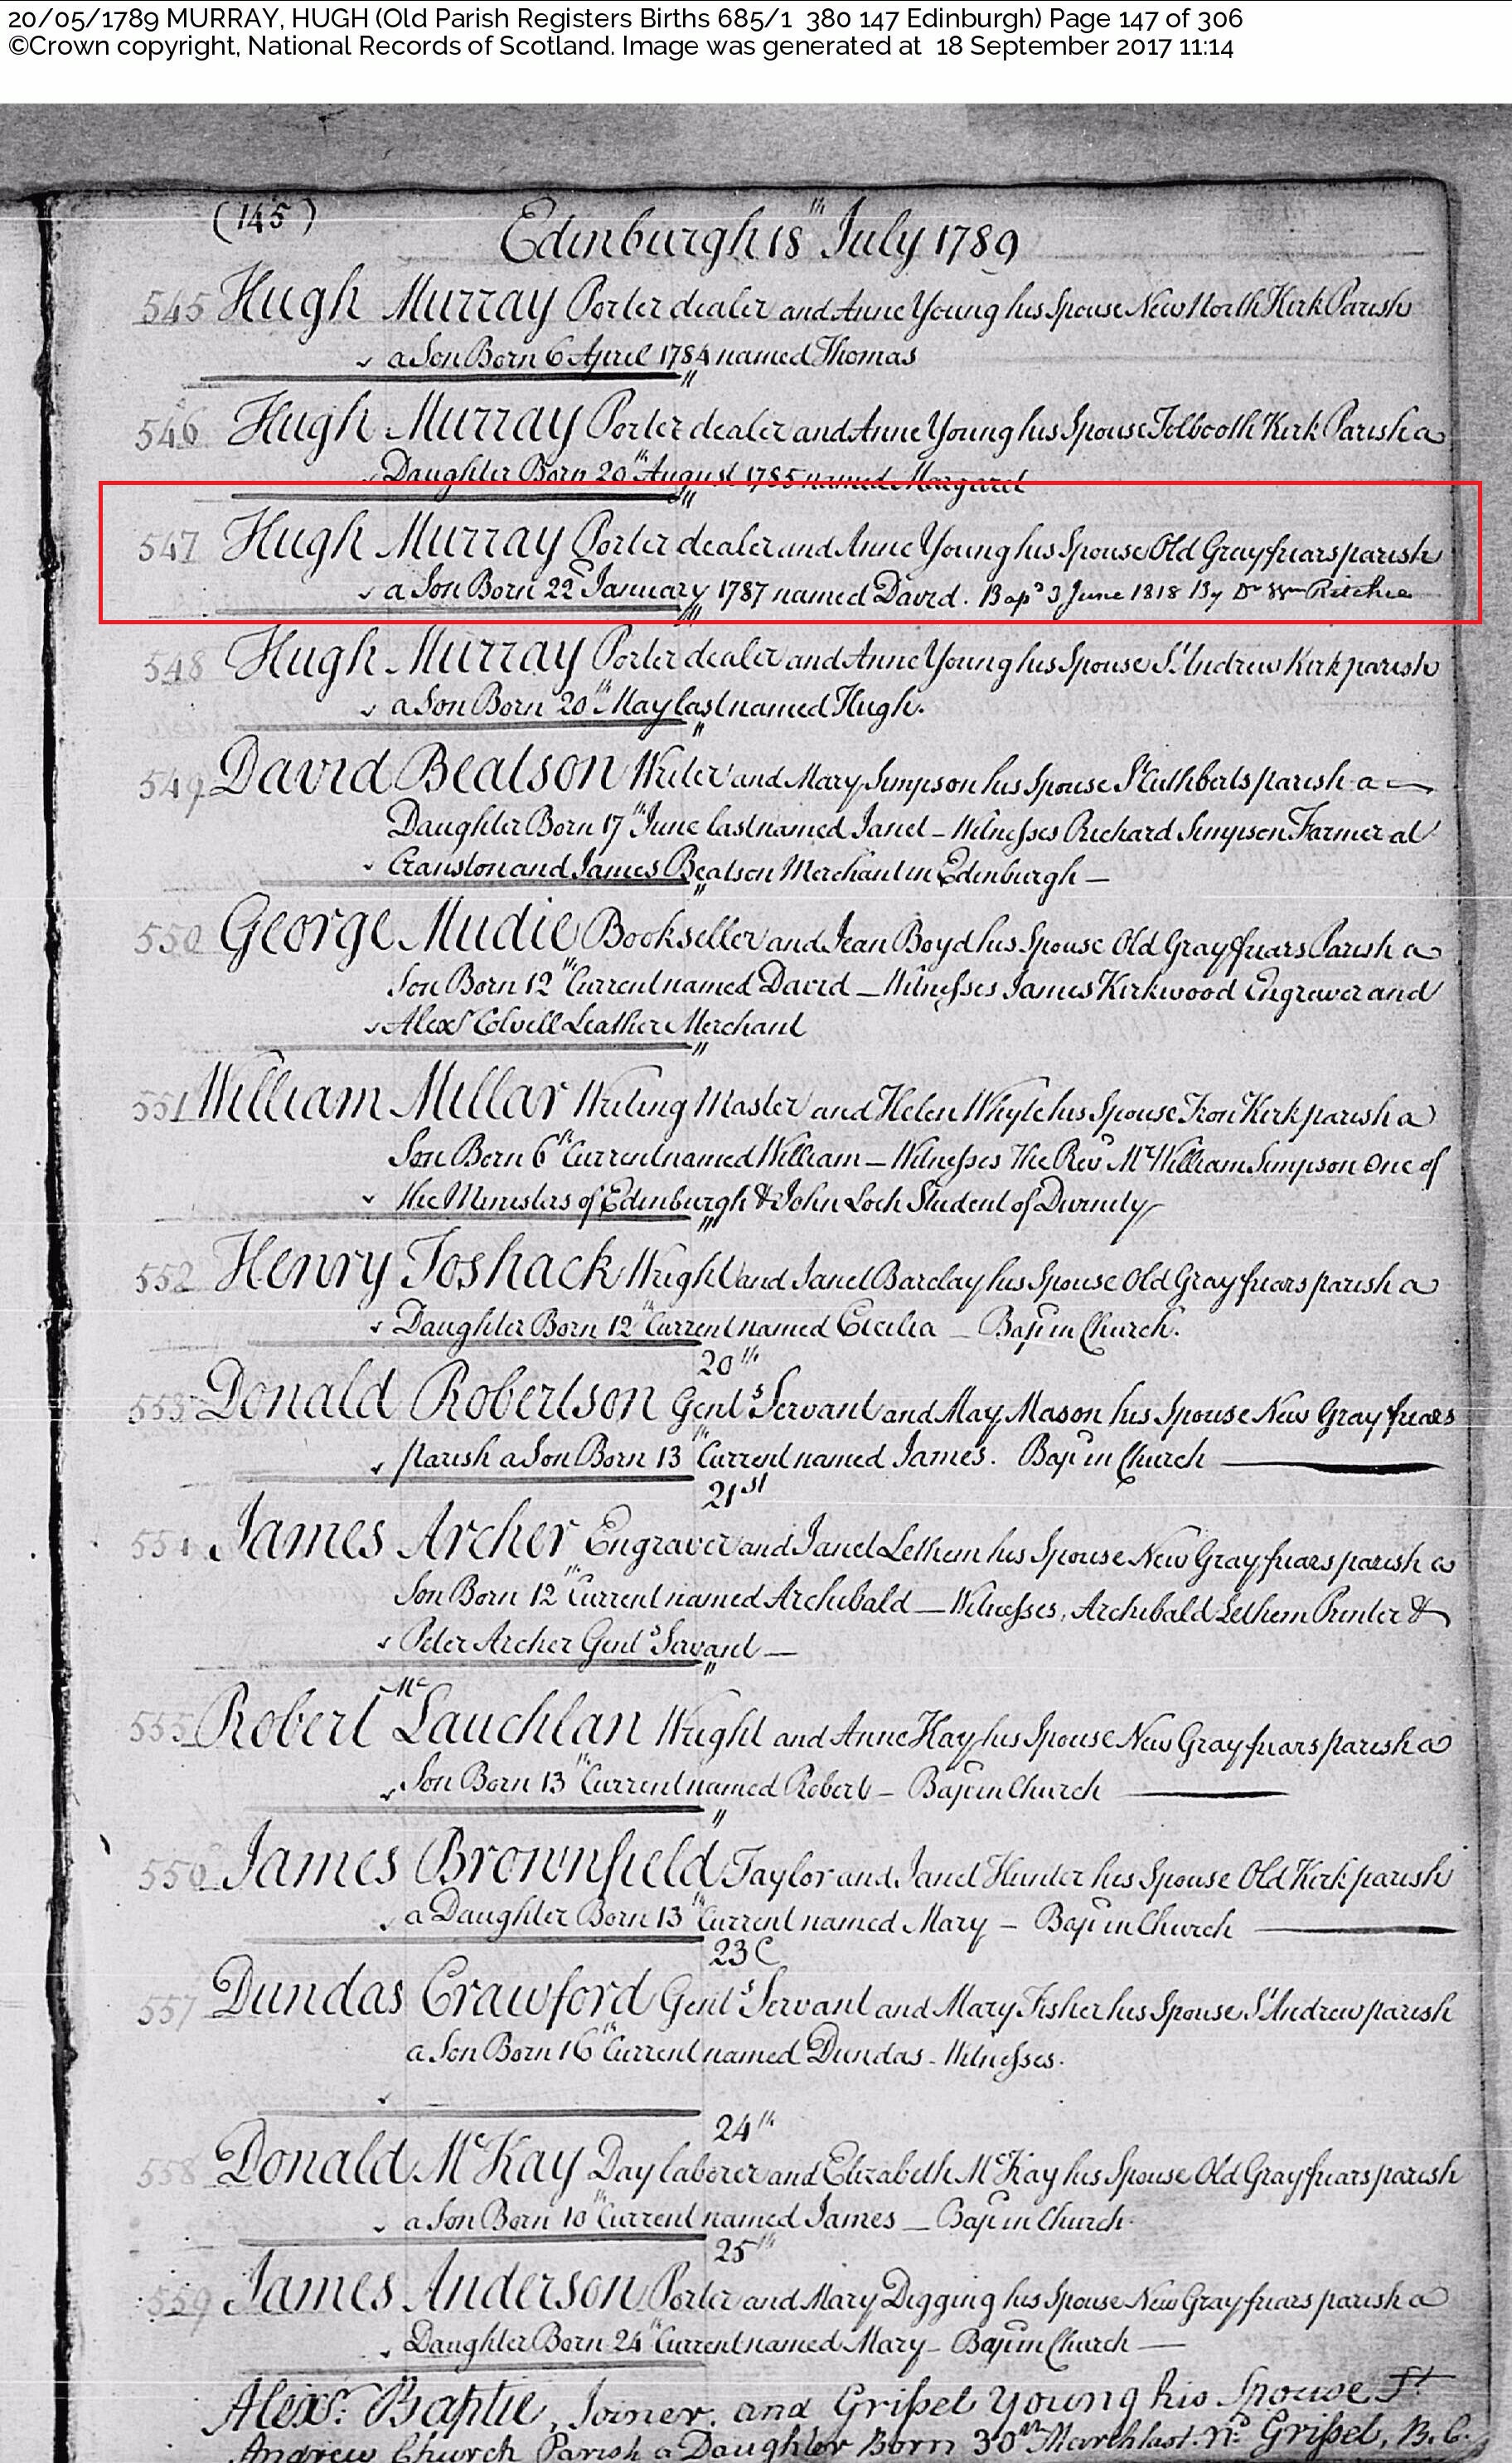 20/05/1789 MURRAY, HUGH (Old Parish Registers Births 685/1 380 147 Edinburgh) Page 147 of 306
©Crown copyright, National Records of Scotland. Image was generated at 18 September 2017 11:14
(145)
Edinburgh 18th July 1789
545 Hugh Murray Porter dealer and Anne Young his Spouse New North Kirk Parish
a Son Born 6 April 1784 named Thomas
"
546 Hugh Murray Porter dealer and Anne Young his Spouse Tolbooth Kirk Parish a
Daughter Born 20th August 1785 named Margaret
"
547 Hugh Murray Porter dealer and Anne Young his Spouse Old Grayfriars parish
a Son Born 22d January 1787 named David. Bapd 3 June 1818 By Dr Wm Ritchie
"
548 Hugh Murray Porter dealer and Anne Young his Spouse St Andrew Kirk parish
a Son Born 20th May last named Hugh.
"
549 David Beatson Writer and Mary Simpson his Spouse St Cuthberts parish a —
Daughter Born 17th June last named Janet – Witnesses Richard Simpson Farmer at
Cranston and James Beatson Merchant in Edinburgh —
"
550 George Mudie Bookseller and Jean Boyd his Spouse Old Grayfriars Parish a
Son Born 12th Current named David – Witnesses James Kirkwood Engraver and
Alexr Colvell Leather Merchant
"
551 William Millar Writing Master and Helen Whyte his Spouse Tron Kirk parish a
Son Born 6th Current named William – Witnesses The Revd Mr William Simpson One of
the Ministers of Edinburgh & John Loch Student of Divinity
"
552 Henry Toshack Wright and Janet Barclay his Spouse Old Grayfriars parish a
Daughter Born 12th Current named Cecilia – Bap: in Church.
20th
553 Donald Robertson Gentls Servant and May Mason his Spouse New Grayfriars
parish a Son Born 13th Current named James. Bap: in Church
21st
554 James Archer Engraver and Janet Lethem his Spouse New Grayfriars parish a
Son Born 12th Current named Archibald – Witnesses, Archibald Lethem Printer &
Peter Archer Gentls Servant —
"
555 Robert McLauchlan Wright and Anne Hay his Spouse New Grayfriars parish a
Son Born 13th Current named Robert – Bap: in Church
"
556 James Brownfield Taylor and Janet Hunter his Spouse Old Kirk parish
a Daughter Born 13th Current named Mary – Bap: in Church
23d
557 Dundas Crawford Gentls Servant and Mary Fisher his Spouse St Andrew parish
a Son Born 16th Current named Dundas – Witnesses.
24th
558 Donald McKay Day laborer and Elizabeth McKay his Spouse Old Grayfriars parish
a Son Born 10th Current named James – Bap: in Church.
25th
559 James Anderson Porter and Mary Digging his Spouse New Grayfriars parish a
Daughter Born 24th Current named Mary – Bap: in Church —
Alexr: Baptie, Joiner, and Grissel Young his Spouse St
Andrew Church Parish a Daughter Born 30th March last. nd. Grissel, B.C.